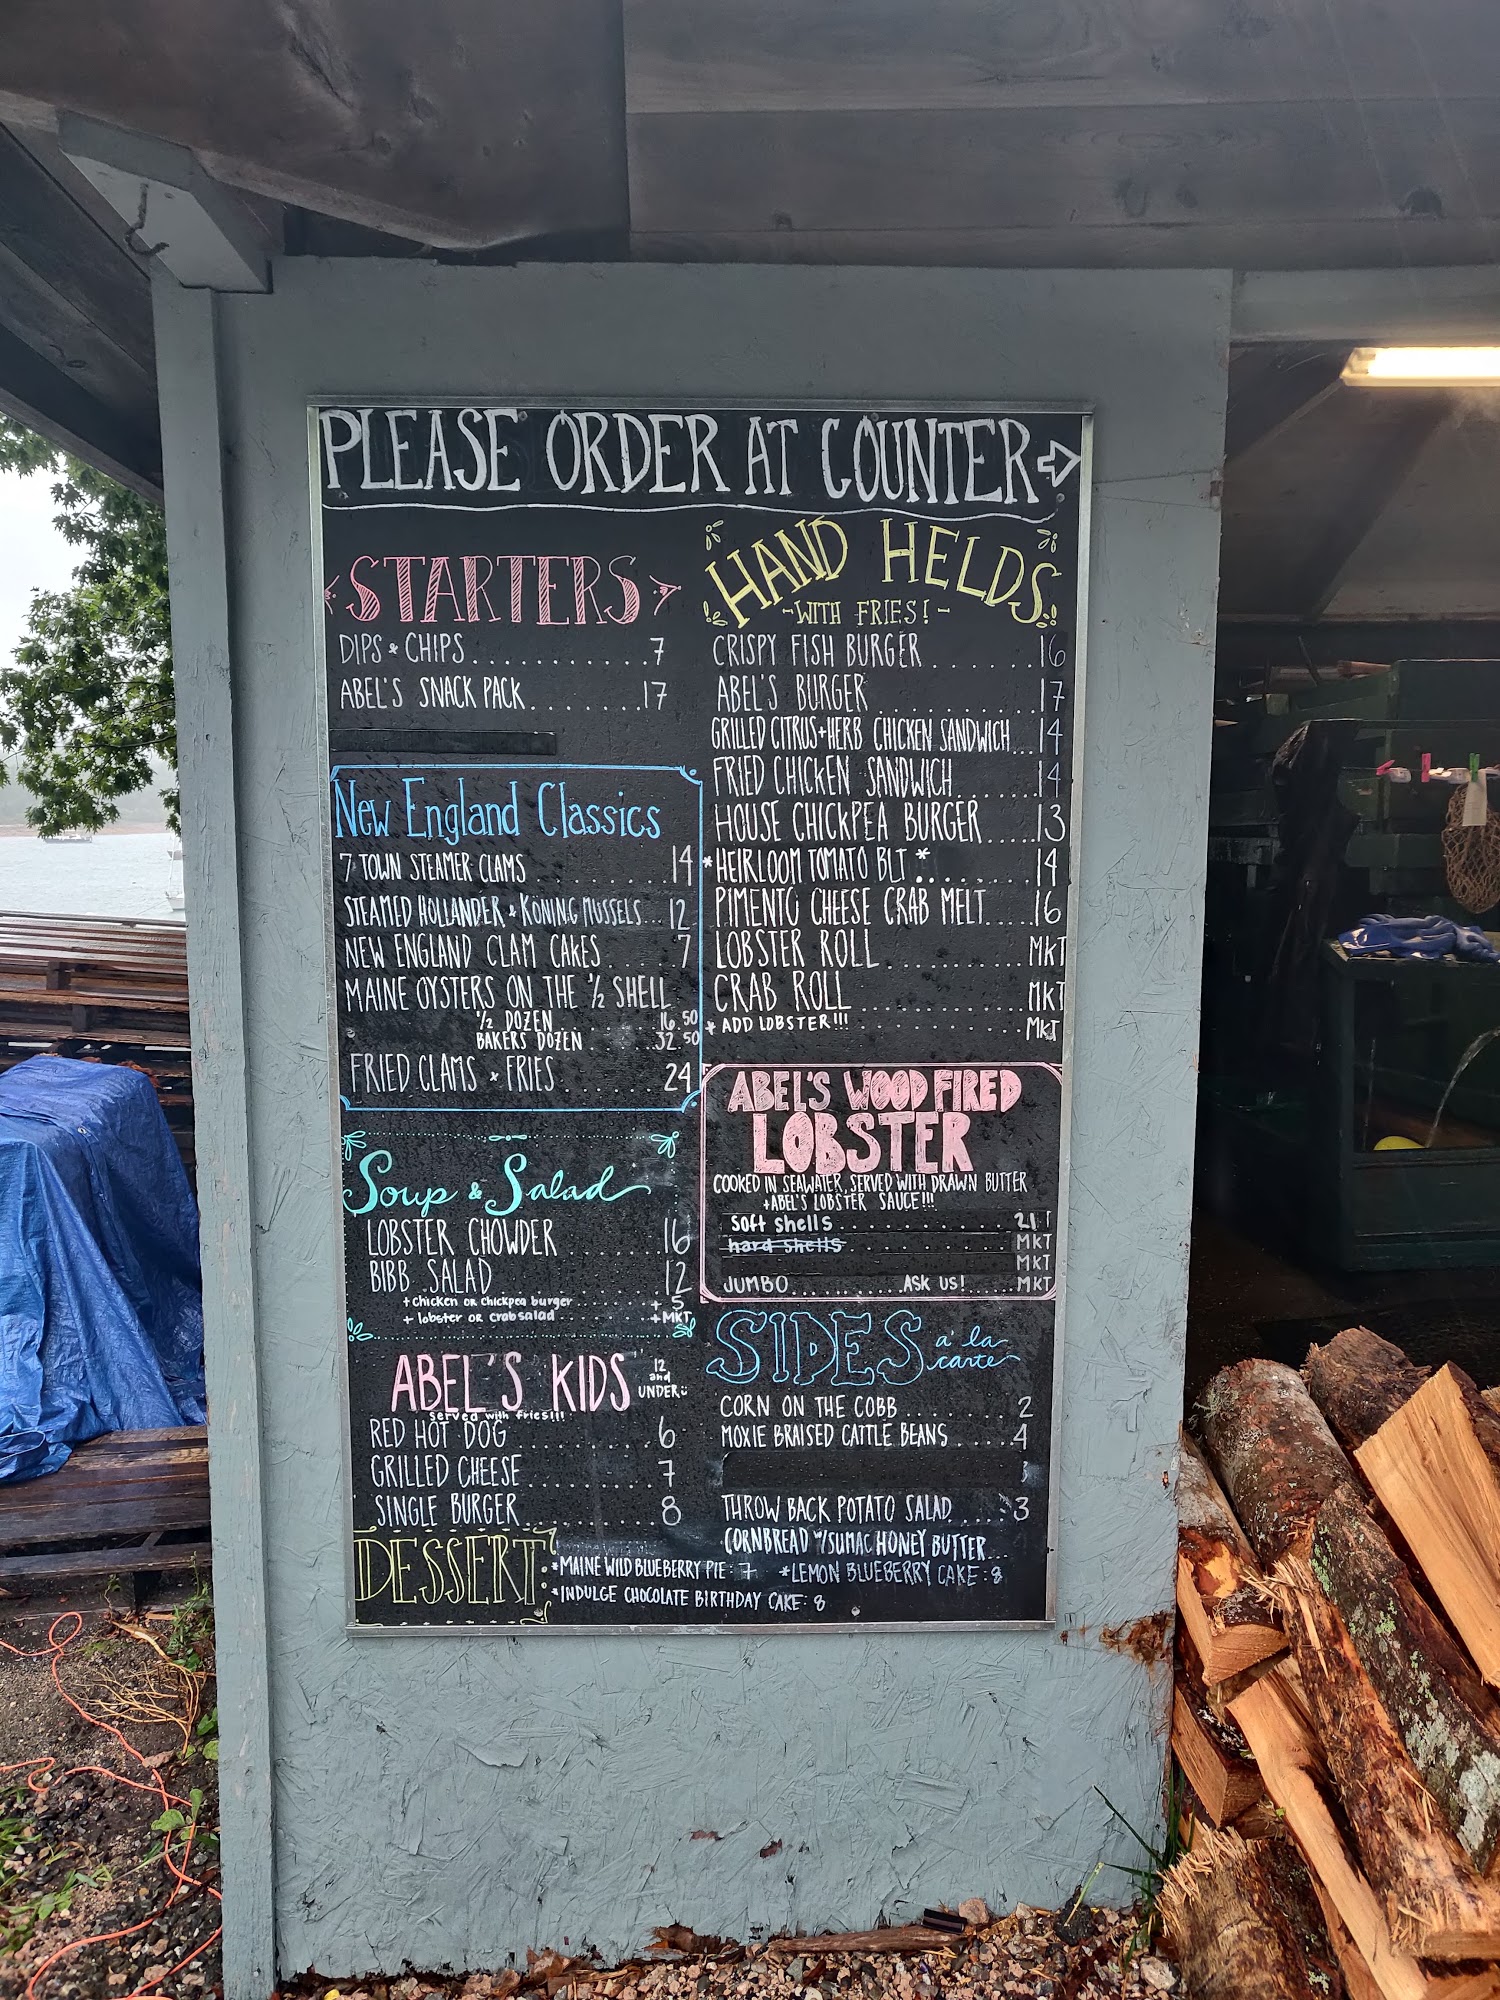 PLEASE ORDER AT COUNTER
STARTERS
DIPS & CHIPS...........7
ABEL'S SNACK PACK.......17
New England Classics
7 TOWN STEAMER CLAMS..........14
STEAMED HOLLANDER & KÖNING MUSSELS...12
NEW ENGLAND CLAM CAKES.....7
MAINE OYSTERS ON THE ½ SHELL
½ DOZEN.......16.50
BAKERS DOZEN....32.50
FRIED CLAMS & FRIES.......24
Soup & Salad
LOBSTER CHOWDER......16
BIBB SALAD..........12
+chicken or chickpea burger.........+5
+ lobster or crab salad.........+MKT
ABEL'S KIDS 12 and UNDER
served with fries!!!
RED HOT DOG.........6
GRILLED CHEESE........7
SINGLE BURGER........8
HAND HELDS
-WITH FRIES!-
CRISPY FISH BURGER.......16
ABEL'S BURGER..........17
GRILLED CITRUS+HERB CHICKEN SANDWICH...14
FRIED CHICKEN SANDWICH.....14
HOUSE CHICKPEA BURGER....13
*HEIRLOOM TOMATO BLT *......14
PIMENTO CHEESE CRAB MELT....16
LOBSTER ROLL..........MKT
CRAB ROLL............MKT
* ADD LOBSTER!!!............MKT
ABEL'S WOOD FIRED
LOBSTER
COOKED IN SEAWATER, SERVED WITH DRAWN BUTTER
+ABEL'S LOBSTER SAUCE!!!
Soft Shells............21
hard shells..........MKT
MKT
JUMBO...........ASK US!......MKT
SIDES a' la carte
CORN ON THE COBB.......2
MOXIE BRAISED CATTLE BEANS.....4
THROW BACK POTATO SALAD.....3
CORNBREAD w/SUMAC HONEY BUTTER...
DESSERT
*MAINE WILD BLUEBERRY PIE: 7 *LEMON BLUEBERRY CAKE: 8
*INDULGE CHOCOLATE BIRTHDAY CAKE: 8